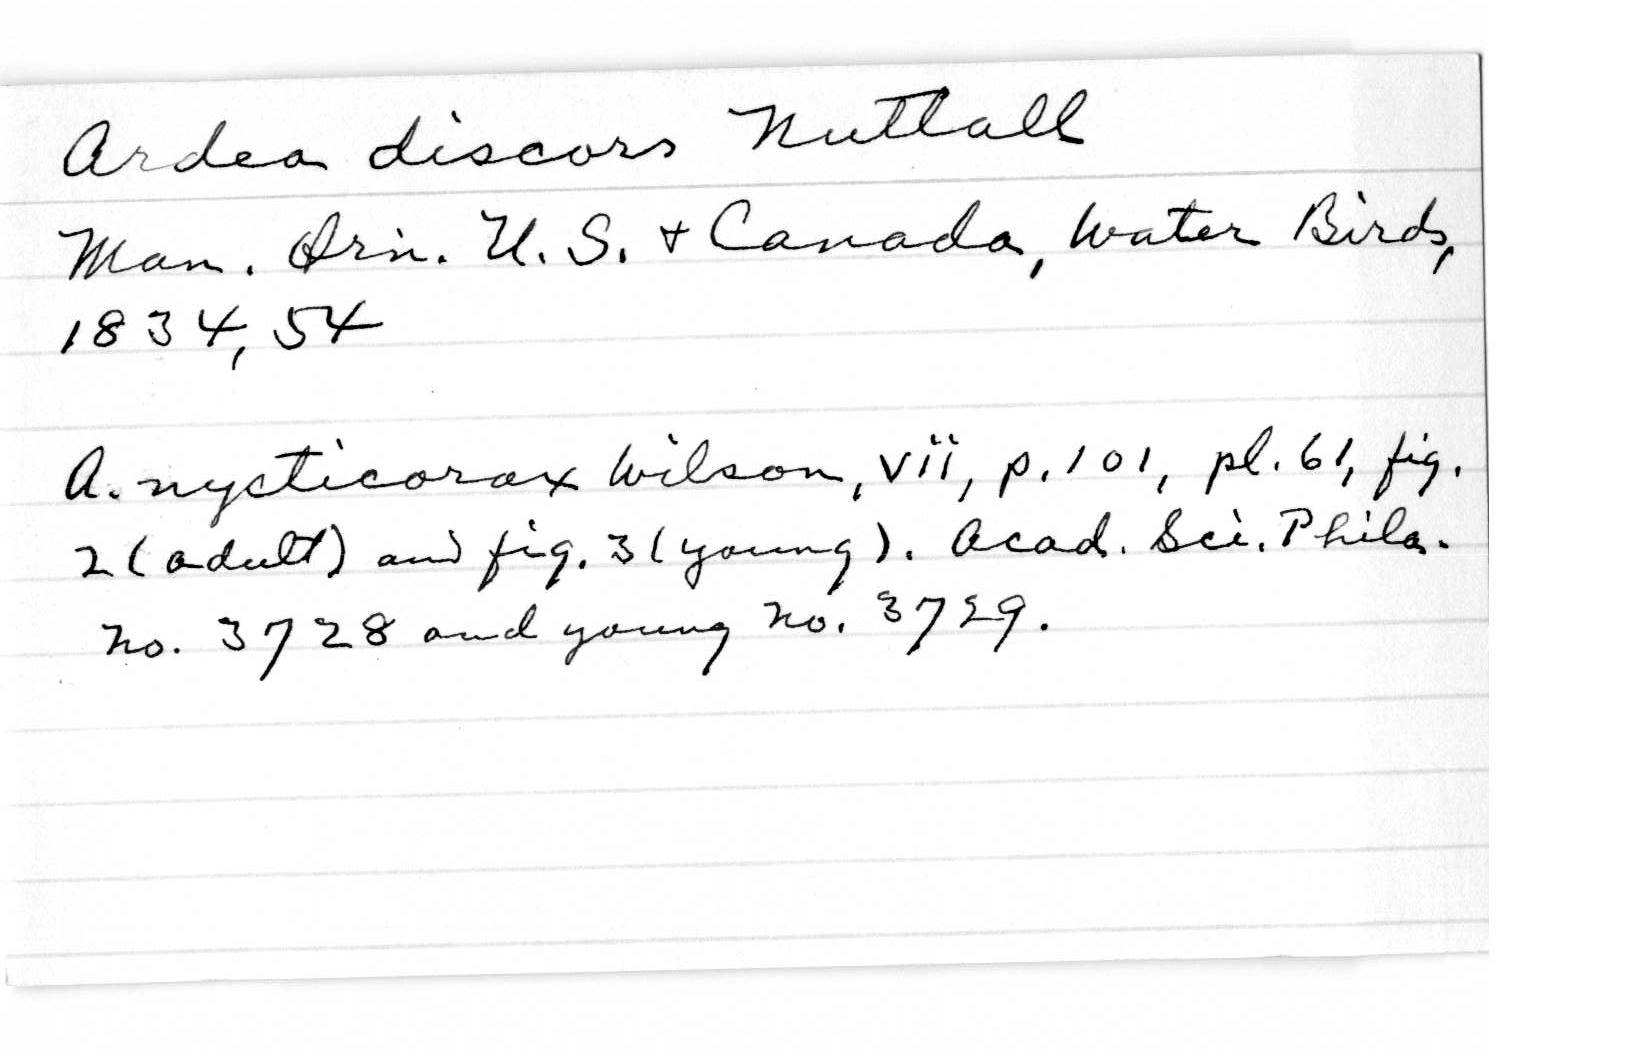 Ardea discors Nuttall
Man. Orn. U.S. + Canada, Water Birds,
1834, 54
A. nycticorax Wilson, vii, p. 101, pl. 61, fig.
2 (adult) and fig. 3 (young). Acad. Sci. Phila.
no. 3728 and young no. 3729.